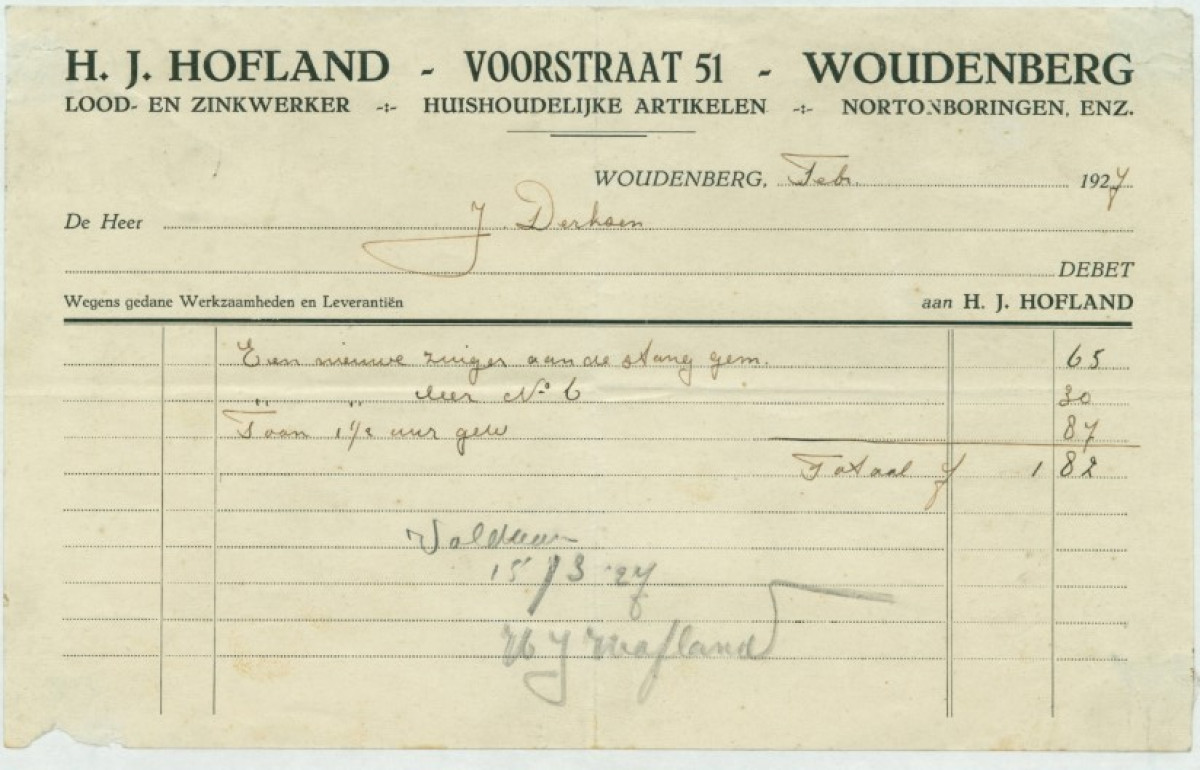 H. J. HOFLAND - VOORSTRAAT 51 - WOUDENBERG
LOOD- EN ZINKWERKER -:- HUISHOUDELIJKE ARTIKELEN -:- NORTONBORINGEN, ENZ.
WOUDENBERG, Febr. 1927
De Heer J. Derksen
DEBET
Wegens gedane Werkzaamheden en Leverantiën aan H. J. HOFLAND
Een nieuwe zuiger aan de stang gem. 65
" " leer No 6 30
Toon 1 1/2 uur gew 87
Totaal f 1 82
Voldaan
15/3 '27
H J Hofland